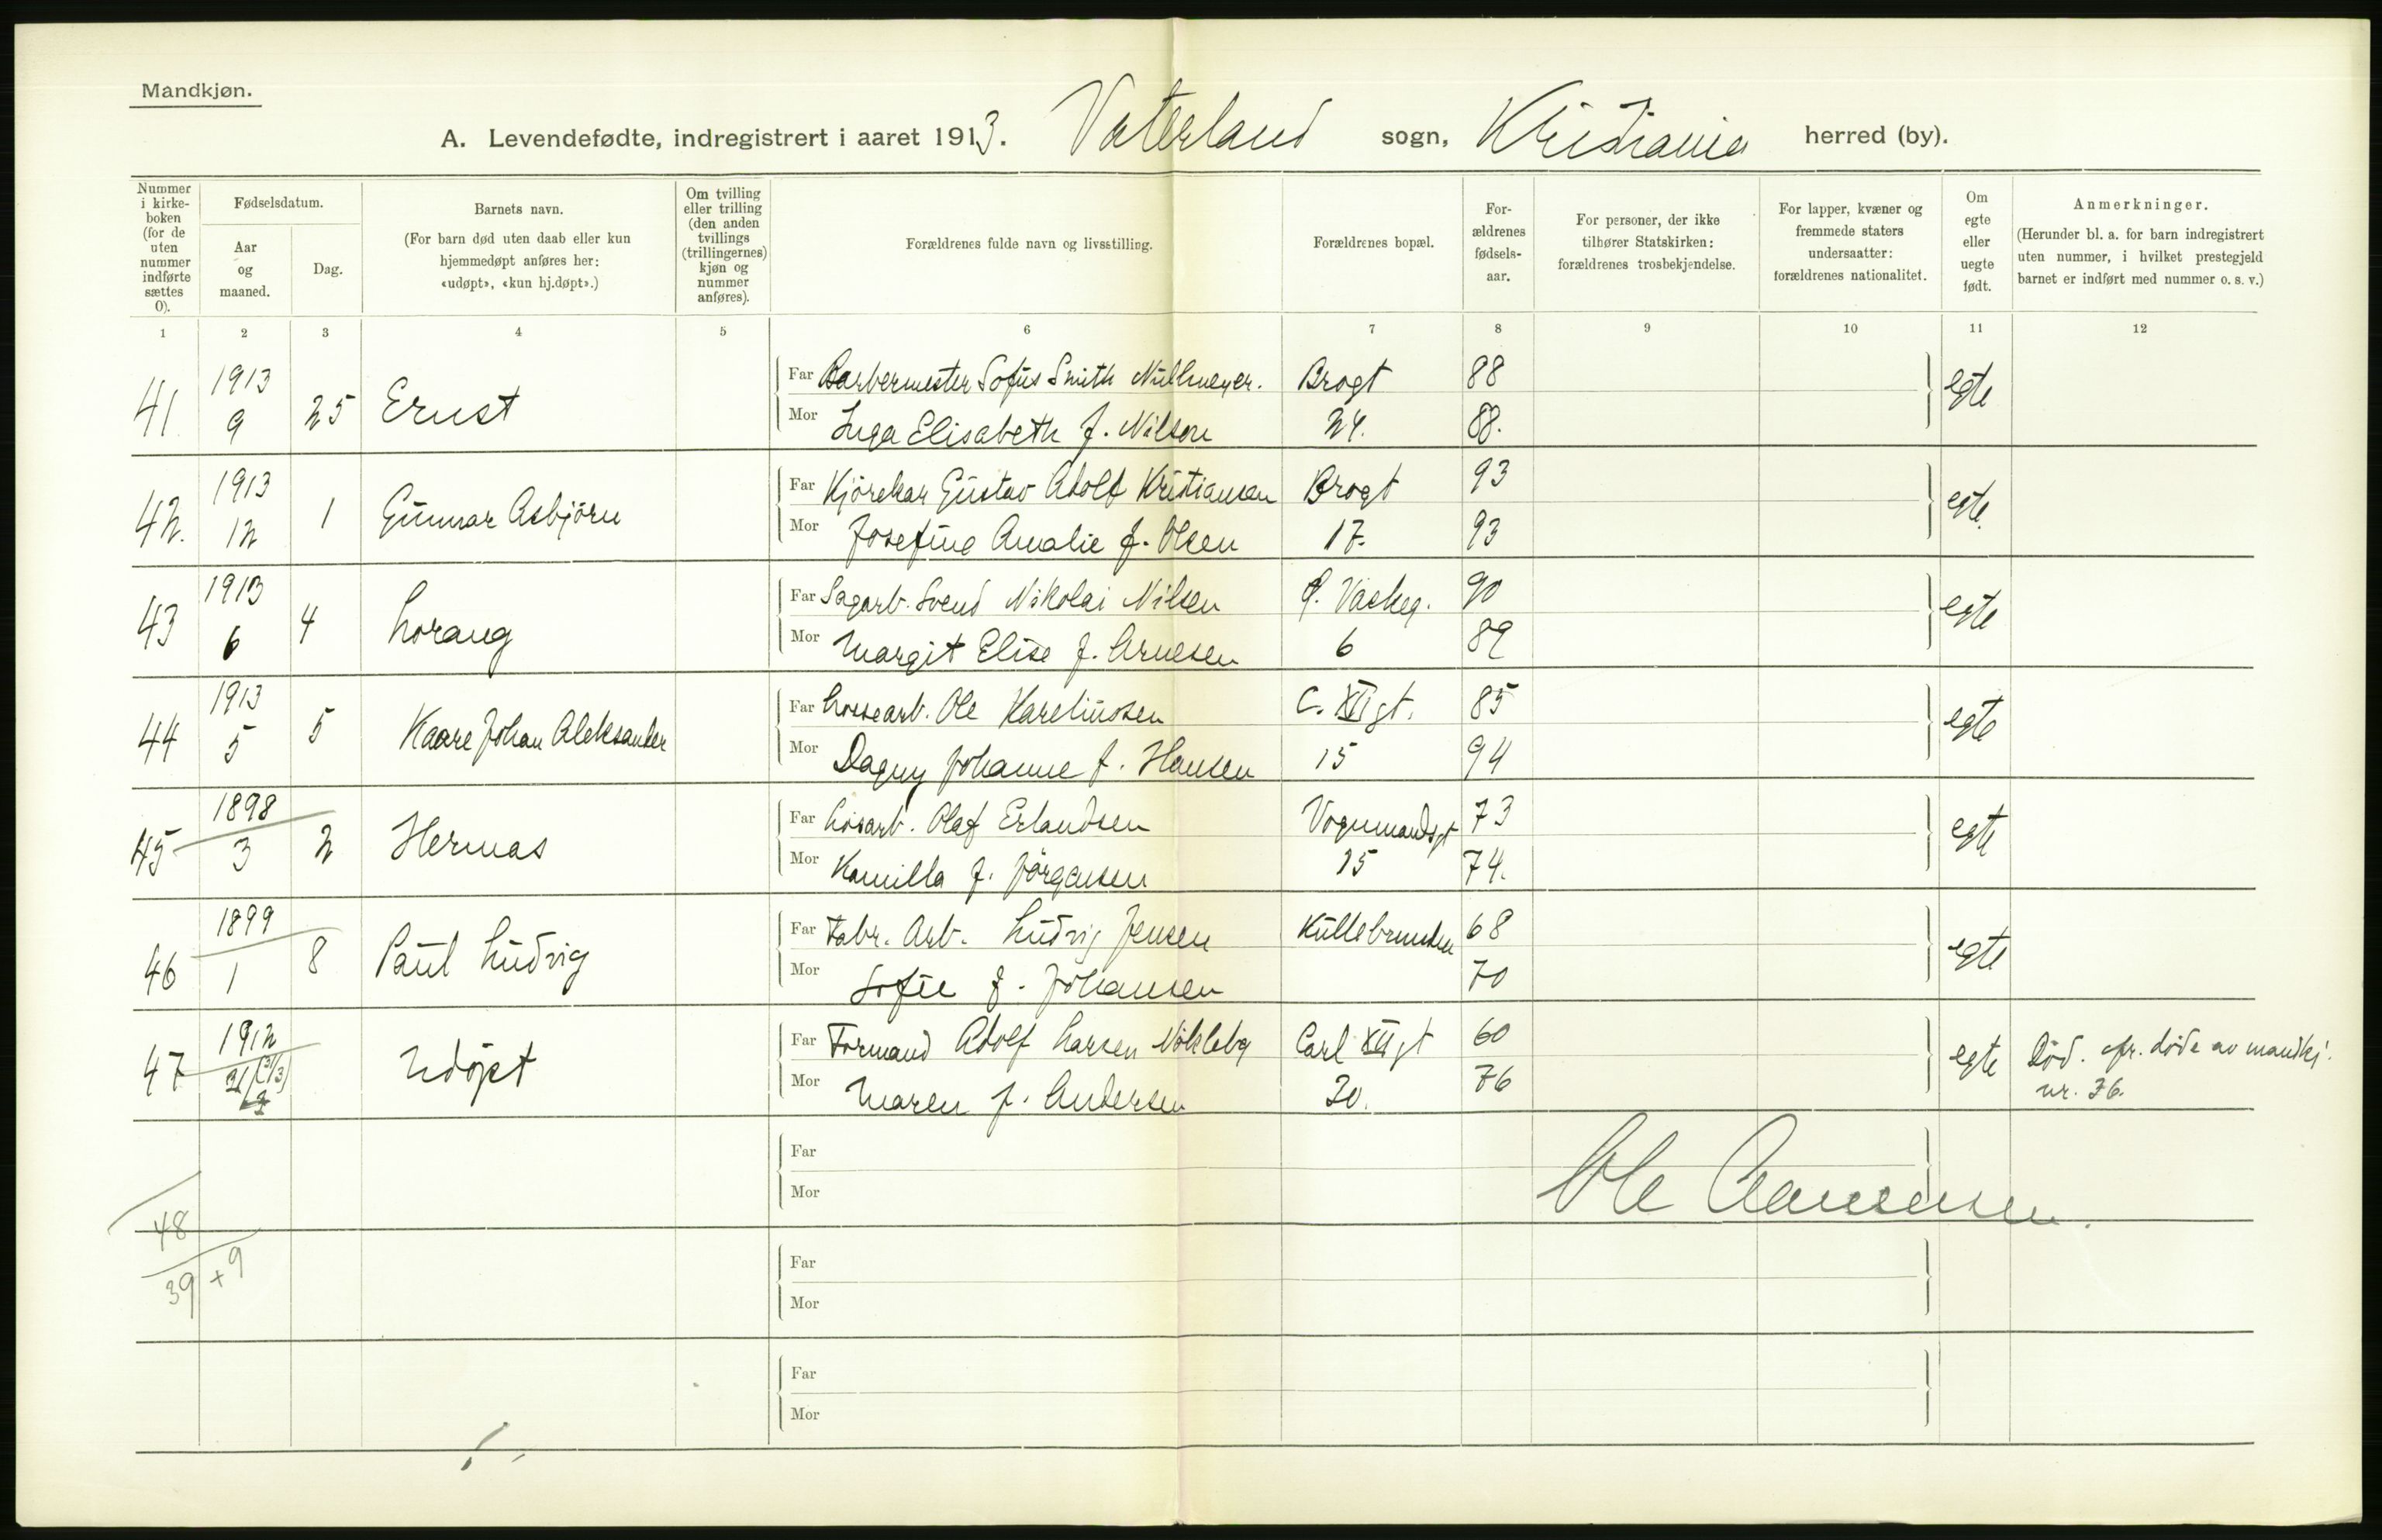 Mandkjøn.
A. Levendefødte, indregistrert i aaret 1913. Vaterland sogn, Kristiania herred (by).
Nummer i kirkeboken (for de uten nummer indførte sættes 0).
Fødselsdatum.
Aar og maaned.
Dag.
Barnets navn.
(For barn død uten daab eller kun hjemmedøpt anføres her: «udøpt», «kun hj.døpt».)
Om tvilling eller trilling (den anden tvillings (trillingernes) kjøn og nummer anføres).
Forældrenes fulde navn og livsstilling.
Forældrenes bopæl.
Forældrenes fødselsaar.
For personer, der ikke tilhører Statskirken: forældrenes trosbekjendelse.
For lapper, kvæner og fremmede staters undersaatter: forældrenes nationalitet.
Om egte eller uegte født.
Anmerkninger.
(Herunder bl. a. for barn indregistrert uten nummer, i hvilket prestegjeld barnet er indført med nummer o. s. v.)
1 2 3 4 5 6 7 8 9 10 11 12
41 1913 9 25 Ernst Far Barbermester Sofus Smith Brogt 88 egte
Mor Inga Elisabeth f. Nilsen 24. 88.
42. 1913 12 1 Gunnar Asbjörn Far Kjörekar Gustav Adolf Kristiansen Brogt 93 egte.
Mor Josefine Amalie f. Olsen 17. 93
43 1913 6 4 Lorang Far Sagarb. Svend Nikolai Nilsen 90 egte
Mor Margit Elise f. Arnesen 6 89
44 1913 5 5 Kaare Johan Aleksander Far Lossearb. Ole Kareliussen C. XII gt. 85 egte
Mor Dagny Johanne f. Hansen 15 94
45 1898 3 2 Hermas Far Løsarb. Olaf Erlandsen Vognmandsgt 73 egte
Mor Kamilla f. Jörgensen 15 74.
46 1899 1 8 Paul Ludvig Far Fabr. Arb. Ludvig Jensen 68 egte
Mor Sofie f. Johansen 70
47 1912 Udöpt Far Formand Adolf Larsen Carl XII gt 60 egte Död. cfr. döde av mandkj.
Mor Maren f. Andersen 20. 76 nr. 76.
Far
Mor
Ole
48
39 + 9
Far
Mor
Far
Mor